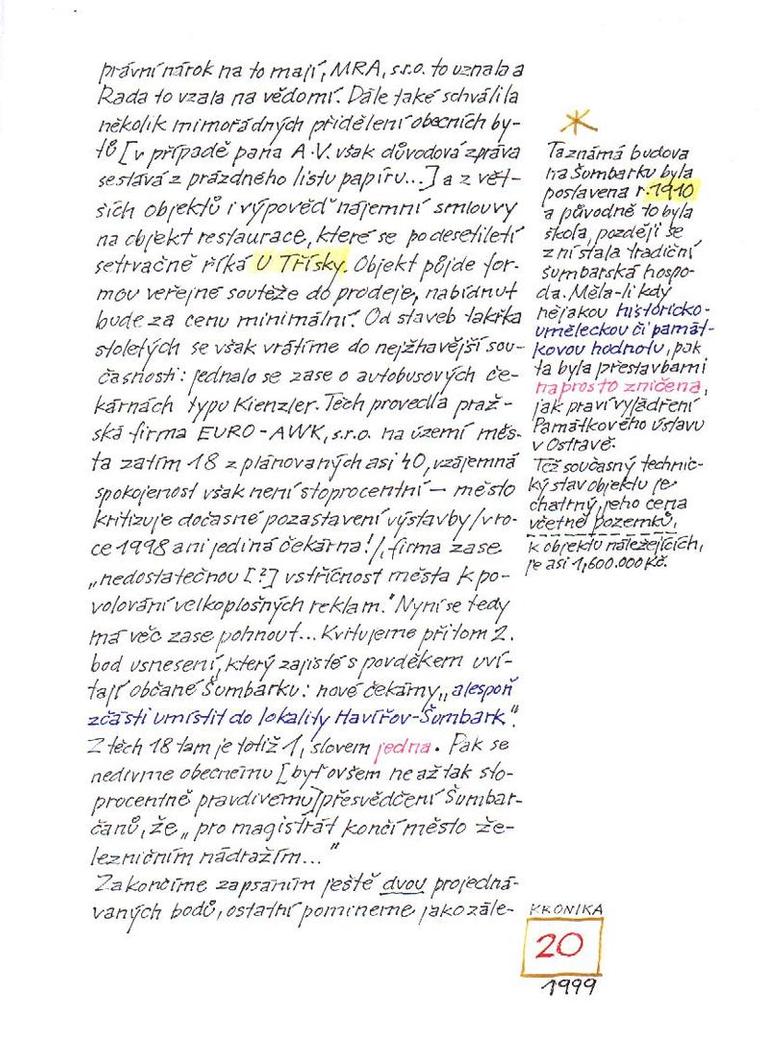 právní nárok na to mají, MRA, s.r.o. to uznala a
Rada to vzala na vědomí. Dále také schválila
několik mimořádných přidělení obecních by-
tů [v případě pana A.V. však důvodová zpráva
sestává z prázdného listu papíru...] a z vět-
ších objektů i výpověď nájemní smlouvy
na objekt restaurace, které se po desetiletí
setrvačně říká U Třísky. Objekt půjde for-
mou veřejné soutěže do prodeje, nabídnut
bude za cenu minimální. Od staveb takřka
stoletých se však vrátíme do nejžhavější sou-
časnosti: jednalo se zase o autobusových če-
kárnách typu Kienzler. Těch provedla praž-
ská firma EURO-AWK, s.r.o. na území měs-
ta zatím 18 z plánovaných asi 40, vzájemná
spokojenost však není stoprocentní – město
kritizuje dočasné pozastavení výstavby /v ro-
ce 1998 ani jediná čekárna!/, firma zase
„nedostatečnou [?] vstřícnost města k po-
volování velkoplošných reklam." Nyní se tedy
má věc zase pohnout... Kvitujeme přitom 2.
bod usnesení, který zajisté s povděkem uví-
tají občané Šumbarku: nové čekárny „alespoň
zčásti umístit do lokality Havířov-Šumbark".
Z těch 18 tam je totiž 1, slovem jedna. Pak se
nedivme obecnému [byť ovšem ne až tak sto-
procentně pravdivému] přesvědčení Šumbar-
čanů, že „pro magistrát končí město že-
lezničním nádražím..."
Zakončíme zapsáním ještě dvou projedná-
vaných bodů, ostatní pomineme jako zále-
*
Ta známá budova
na Šumbarku byla
postavena r. 1910
a původně to byla
škola, později se
z ní stala tradiční
šumbarská hospo-
da. Měla-li kdy
nějakou historicko-
uměleckou či památ-
kovou hodnotu, pak
ta byla přestavbami
naprosto zničena,
jak praví vyjádření
Památkového ústavu
v Ostravě.
Též současný technic-
ký stav objektu je
chatrný, jeho cena
včetně pozemků,
k objektu náležejících,
je asi 1,600.000 Kč.
KRONIKA
20
1999